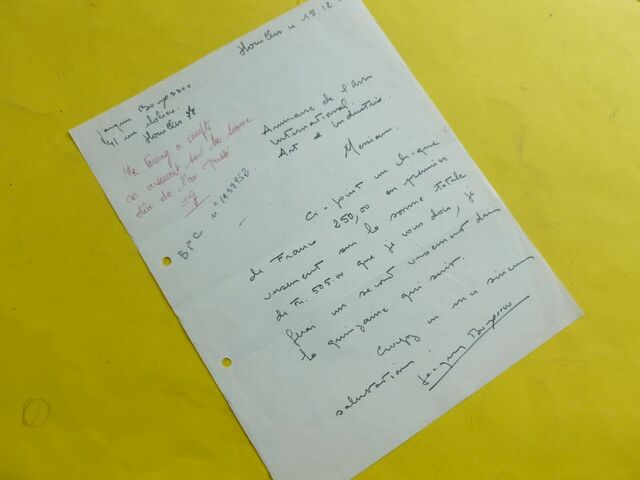 Houilles le 15.12
Jacques Bouyssou
41 rue
Houilles
Annuaire de l'art
international.
Art & industrie.
Monsieur.
a compté
ce versement sur la somme
due de l'an passé
BPC n° 1939958
Ci-joint un chèque
de Francs 250,00 en premier
versement sur la somme totale
de Fr. 505.00 que je vous dois, je
ferai un second versement dans
la quinzaine qui suit.
Croyez en mes sincères
salutations
Jacques Bouyssou